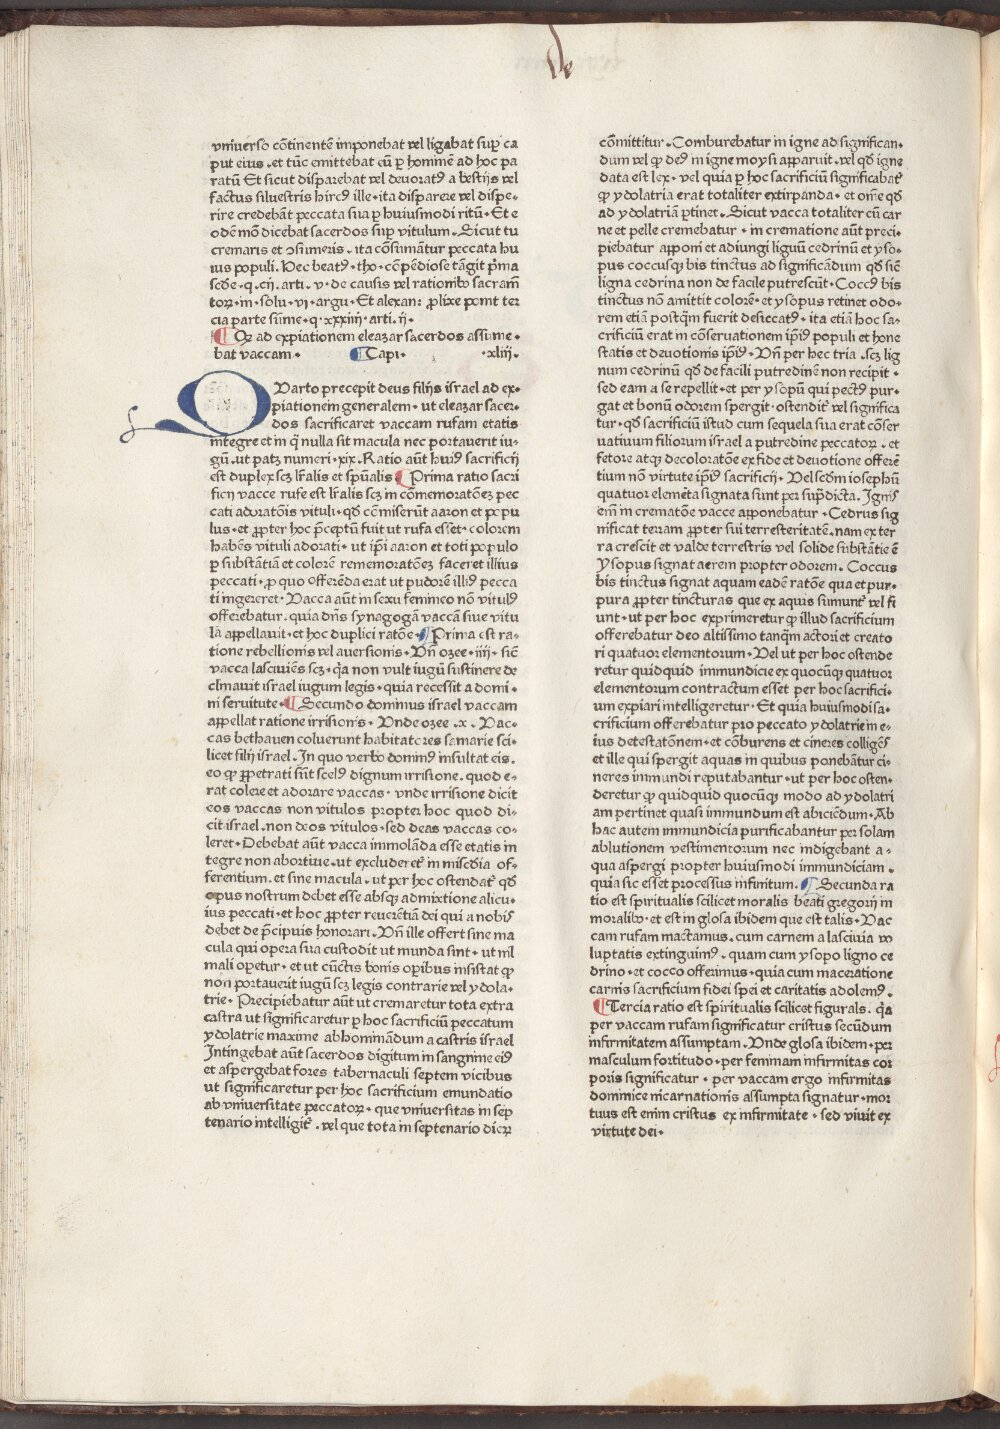 De
vniuerso cōtinentē imponebat vel ligabat suꝑ ca
put eius. et tūc emittebat cū ꝑ hominē ad hoc pa
ratū Et sicut disparebat vel deuoratꝰ a bestijs vel
factus siluestris hircꝰ ille. ita disparere vel dispe-
rire credebāt peccata sua ꝑ huiusmodi ritū. Et e
odē mō dicebat sacerdos suꝑ vitulum. Sicut tu
cremaris et ↄsumeris. ita cōsumātur peccata hu
ius populi. Hec beatꝰ. tho. cōpēdiose tāgit pꝛ̄ma
scde. q. cij. arti. v. de causis vel rationibꝰ sacram̄
toꝝ. in. solu. vi. argu. Et alexan. ꝓlixe ponit ter
cia parte sūme. q. xxxiiij. arti. ij.
¶ Qꝫ ad expiationem eleazar sacerdos assume-
bat vaccam. ¶ Capi. .xliij.
QVarto precepit deus filijs israel ad ex-
piationem generalem. ut eleazar sacer-
dos sacrificaret vaccam rufam etatis
integre et in q̄ nulla sit macula nec portauerit iu-
gū. ut patꝫ numeri. xix. Ratio aūt huiꝰ sacrificij
est duplex scꝫ lr̄alis et spūalis ¶ Prima ratio sacri
ficij vacce rufe est lr̄alis scꝫ in cōmemoratōeꝫ pec
cati adoratōis vituli. qđ cōmiserūt aaron et popu
lus. et ꝓpter hoc p̄ceptū fuit ut rufa esset. colorem
habēs vituli adorati. ut ip̄i aaron et toti populo
ꝑ substātiā et colorē rememoratōeꝫ faceret illius
peccati. ꝓ quo offerēda erat ut pudorē illiꝰ pecca
ti ingereret. Vacca aūt in sexu femineo nō vitulꝰ
offerebatur. quia dn̄s synagogā vaccā siue vitu
lā appellauit. et hoc duplici ratōe. ¶ Prima est ra-
tione rebellionis vel auersionis. Vn̄ ozee. iiij. sic̄
vacca lasciuiēs scꝫ. q̄a non vult iugū sustinere de
clinauit israel iugum legis. quia recessit a domi-
ni seruitute. ¶ Secundo dominus israel vaccam
appellat ratione irrisionis. Vnde ozee .x. Vac-
cas bethauen coluerunt habitatores samarie sci-
licet filij israel. In quo verbo dominꝰ insultat eis.
eo ꝙ ꝑpetrati sūt scelꝰ dignum irrisione. quod e-
rat colere et adorare vaccas. vnde irrisione dicit
eos vaccas non vitulos propter hoc quod di-
cit israel. non deos vitulos. sed deas vaccas co-
leret. Debebat aūt vacca immolāda esse etatis in
tegre non abortiue. ut excluderet̄ in miscđia of-
ferentium. et sine macula. ut per hoc ostendat̄ qđ
opus nostrum debet esse absqꝫ admixtione alicu-
ius peccati. et hoc ꝓpter reuerētiā dei qui a nobis
debet de p̄cipuis honorari. Vn̄ ille offert sine ma
cula qui opera sua custodit ut munda sint. ut nil
mali opetur. et ut cūctis bonis oꝑibus insistat ꝙ
non portauerit iugū scꝫ legis contrarie vel ydola-
trie. Precipiebatur aūt ut cremaretur tota extra
castra ut significaretur ꝑ hoc sacrificiū peccatum
ydolatrie maxime abhominādum a castris israel
Intingebat aūt sacerdos digitum in sanguine eiꝰ
et aspergebat fores tabernaculi septem vicibus
ut significaretur per hoc sacrificium emundatio
ab vniuersitate peccatoꝝ. que vniuersitas in sep
tenario intelligit̄. vel que tota in septenario dieꝝ
cōmittitur. Comburebatur in igne ad significan-
dum vel ꝙ deꝰ in igne moysi apparuit. vel qđ igne
data est lex. vel quia ꝑ hoc sacrificiū significabat̄
ꝙ ydolatria erat totaliter extirpanda. et om̄e qđ
ad ydolatriā ꝑtinet. Sicut vacca totaliter cū car
ne et pelle cremebatur. in crematione aūt preci-
piebatur apponi et adiungi lignū cedrinū et yso-
pus coccusqꝫ bis tinctus ad significādum qđ sic̄
ligna cedrina non de facile putrescūt. Coccꝰ bis
tinctus nō amittit colorē. et ysopus retinet odo-
rem etiā postq̄m fuerit desiccatꝰ. ita etiā hoc sa-
crificiū erat in cōseruationem ip̄iꝰ populi et hone
statis et deuotionis ip̄iꝰ. Vn̄ per hec tria .scꝫ lig
num cedrinū qđ de facili putredinē non recipit.
sed eam a se repellit. et per ysopū qui pectꝰ pur-
gat et bonū odorem spergit. ostendit̄ vel significa
tur. qđ sacrificiū istud cum sequela sua erat cōser
uatiuum filiorum israel a putredine peccatoꝝ. et
fetore atqꝫ decoloratōe ex fide et deuotione offerē
tium nō virtute ip̄iꝰ sacrificij. Vel scđm iosephū
quatuor elemēta signata sunt per supͣdicta. Ignis
em̄ in crematōe vacce apponebatur. Cedrus sig
nificat terram ꝓpter sui terresteritatē. nam ex ter
ra crescit et valde terrestris vel solide substātie ē
Ysopus signat aerem propter odorem. Coccus
bis tinctus signat aquam eadē ratōe qua et pur-
pura ꝓpter tincturas que ex aquis sumunt̄ vel fi
unt. ut per hoc exprimeretur ꝙ illud sacrificium
offerebatur deo altissimo tanq̄m actori et creato
ri quatuor elementorum. Vel ut per hoc ostende
retur quidquid immundicie ex quocūqꝫ quatuor
elementorum contractum esset per hoc sacrifici-
um expiari intelligeretur. Et quia huiusmodi sa-
crificium offerebatur pro peccato ydolatrie in e-
ius detestatōnem. et cōburens et cineres colligēs
et ille qui spergit aquas in quibus ponebātur ci-
neres inmundi reputabantur. ut per hoc osten-
deretur ꝙ quidquid quocūqꝫ modo ad ydolatri
am pertinet quasi immundum est abiciēdum. Ab
hac autem immundicia purificabantur per solam
ablutionem vestimentorum nec indigebant a-
qua aspergi propter huiusmodi immundiciam.
quia sic esset processus infinitum. ¶ Secunda ra
tio est spiritualis scilicet moralis beati gregorij in
moralibꝰ. et est in glosa ibidem que est talis. Vac
cam rufam mactamus. cum carnem a lasciuia vo
luptatis extinguimꝰ. quam cum ysopo ligno ce
drino. et cocco offerimus. quia cum maceratione
carnis sacrificium fidei spei et caritatis adolemꝰ.
¶ Tercia ratio est spiritualis scilicet figurals. q̄a
per vaccam rufam significatur cristus secūdum
infirmitatem assumptam. Vnde glosa ibidem. per
masculum fortitudo. per feminam infirmitas cor
poris significatur. per vaccam ergo infirmitas
dominice incarnationis assumpta signatur. mor
tuus est enim cristus ex infirmitate. sed viuit ex
virtute dei.